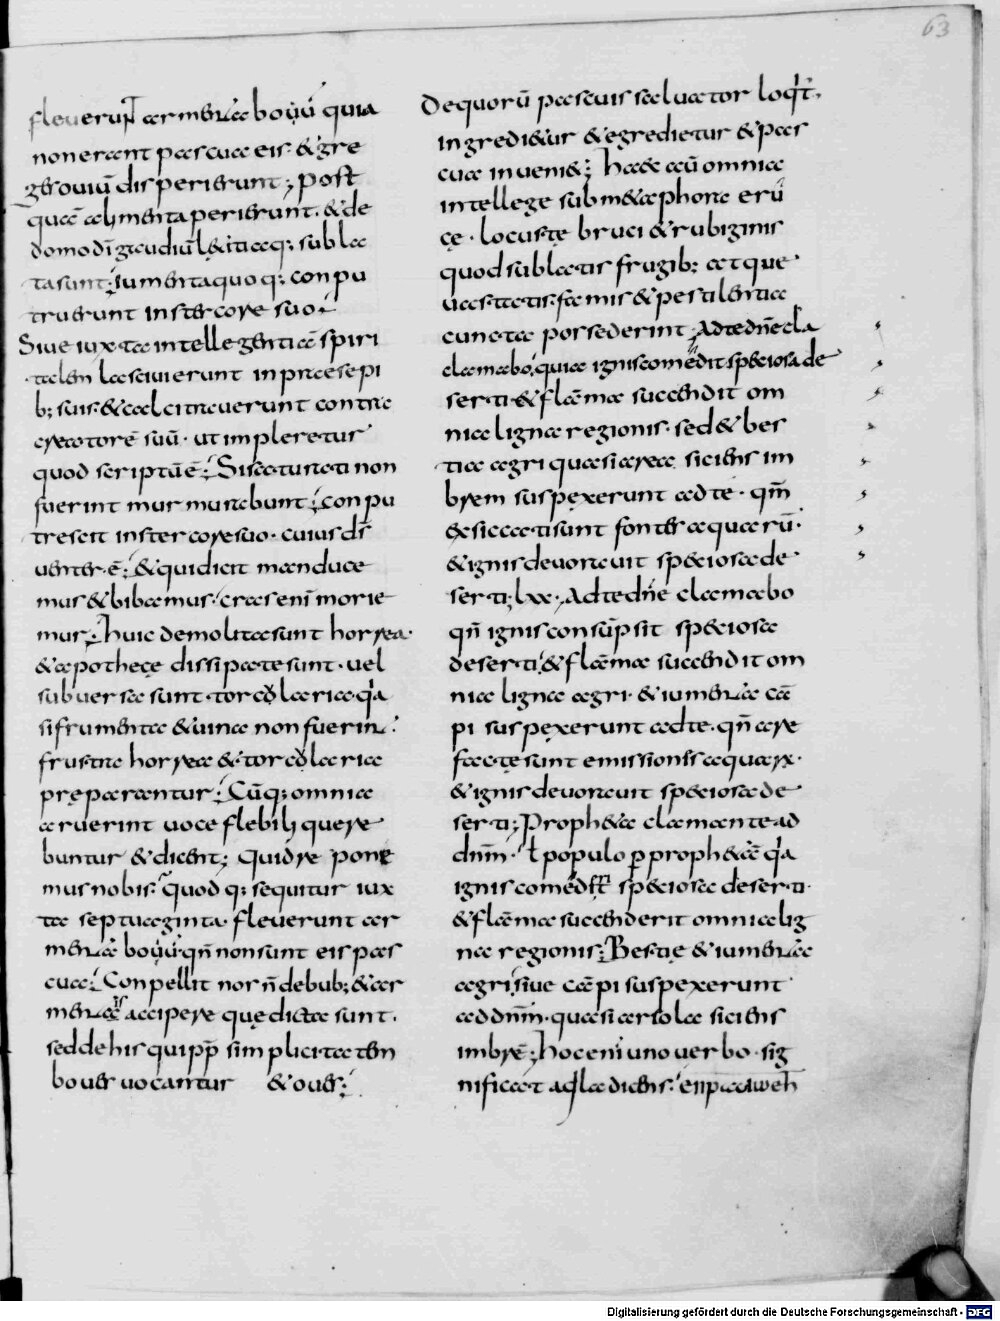 63
fleuerunt armenta boųų́ quia
non erant pascua eis. & gre
ges ouiū disperierunt; post
quā alimenta perierunt. & de
domo dī gaudiū l&itiaq; subla
ta sunt; iumenta quoq; conpu
truerunt in stercore suo;
Siue iuxta intellegentiā spiri
talem lasciuierunt in praesepi
b; suis. & calcitrauerunt contra
creatorē suū. ut impleretur
quod scriptū ē; Si saturati non
fuerint murmurabunt; conpu
trescit in stercore suo. cuius dś
uenter ē; & qui dicit manduce
mus & bibamus. cras enī morie
mur; huic demolita sunt horrea.
& apothecę dissipatę sunt. uel
subuersa sunt torcularia. q́a
si frumenta & uinea non fuerint.
frustra horrea & torcularia
pręparantur; Cūq; omnia
aruerint uoce flebili quere
buntur & dicent; Quid re pone
mus nobis. quod q; sequitur iux
ta septuaginta. fleuerunt ar
menta boųų́. qn̄ non sunt eis pas
cua; Conpellit nos n̄ de bub; & ar
mentis accipere quę dicta sunt.
sed de his qui ꝓp̄ simplicitatem
boues uocantur & oues;
De quorū pascuis saluator loq́t́.
ingredi&ur & egredietur & pas
cua inueni&; haec & aū omnia
intellege sub m&aphora eru
cę. locustę bruci & rubiginis
quod sublatis frugib; atque
uastatis. famis & pestilentia
cuncta possederint; Ad te dn̄e cla
clamabo. quia ignis comēdit speciosa de
serti & flāma succendit om
nia ligna regionis. sed & bes
tiae agri quasi area siciens im
brem suspexerunt ad te. qm̄
exsiccati sunt fontes aquarū.
& ignis deuorauit speciosa de
serti; lxx. Ad te dn̄e clamabo
qn̄ ignis consūpsit speciosa
deserti. & flāma succendit om
nia ligna agri. & iumenta cā
pi suspexerunt ad te. qn̄ are
factę sunt emissiones aquarū.
& ignis deuorauit speciosa de
serti; Proph&a clamante ad
dn̄m. ł populo ꝑ proph&ā q́a
ignis comederit speciosa deserti.
& flāma succenderit omnia lig
na regionis; Bestię & iumenta
agri. siue cāpi suspexerunt
ad dn̄m. quasi ar sola siciens
imbrē; hoc enī uno uerbo sig
nificat aquila dicens.
Digitalisierung gefördert durch die Deutsche Forschungsgemeinschaft - DFG